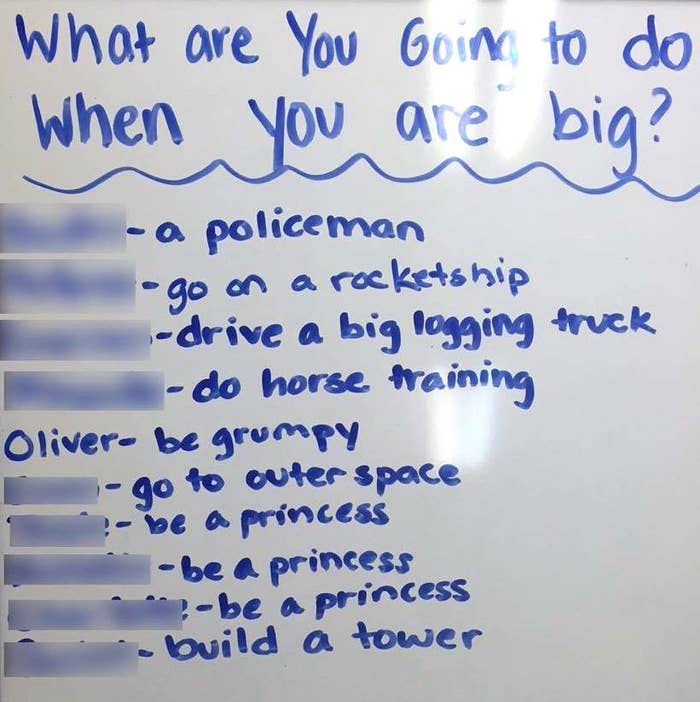 What are You Going to do
When you are big?
- a policeman
- go on a rocketship
- drive a big logging truck
- do horse training
Oliver- be grumpy
- go to outer space
- be a princess
- be a princess
- be a princess
- build a tower